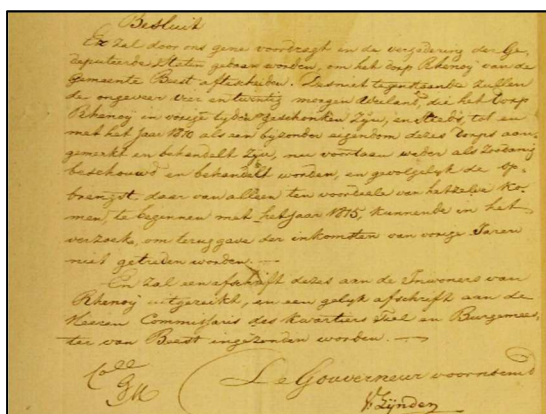 Besluit
Er zal door ons gene voordragt in de vergadering der Ge,
deputeerde Staten gedaan worden, om het dorp Rhenoy van de
Gemeente Beest afte scheiden. Desniet tegenstaande zullen
de ongeveer vier en twintig morgen Weiland, die het Dorp
Rhenoy in vorige tyden geschonken zyn, en steeds, tot en
met het Jaar 1810 als een byzonder eigendom dezes Dorps aan,
gemerkt en behandelt zyn, nu voortaan weder als zoodanig
beschouwd en behandelt worden, en gevolgelyk de op,
brengst daar van alleen ten voordeele van hetzelve ko,
men, te beginnen met het Jaar 1815, kunnende in het
verzoek, om terug gave der inkomsten van vorige Jaren
niet getreden worden.
En zal een afschrift dezes aan de Inwoners van
Rhenoy uitgereikt, en een gelyk afschrift aan de
Heeren Commissaris des Kwartiers Tiel en Burgemees,
ter van Beest ingezonden worden.
Coll
De Gouverneur voornoemd
Lynden